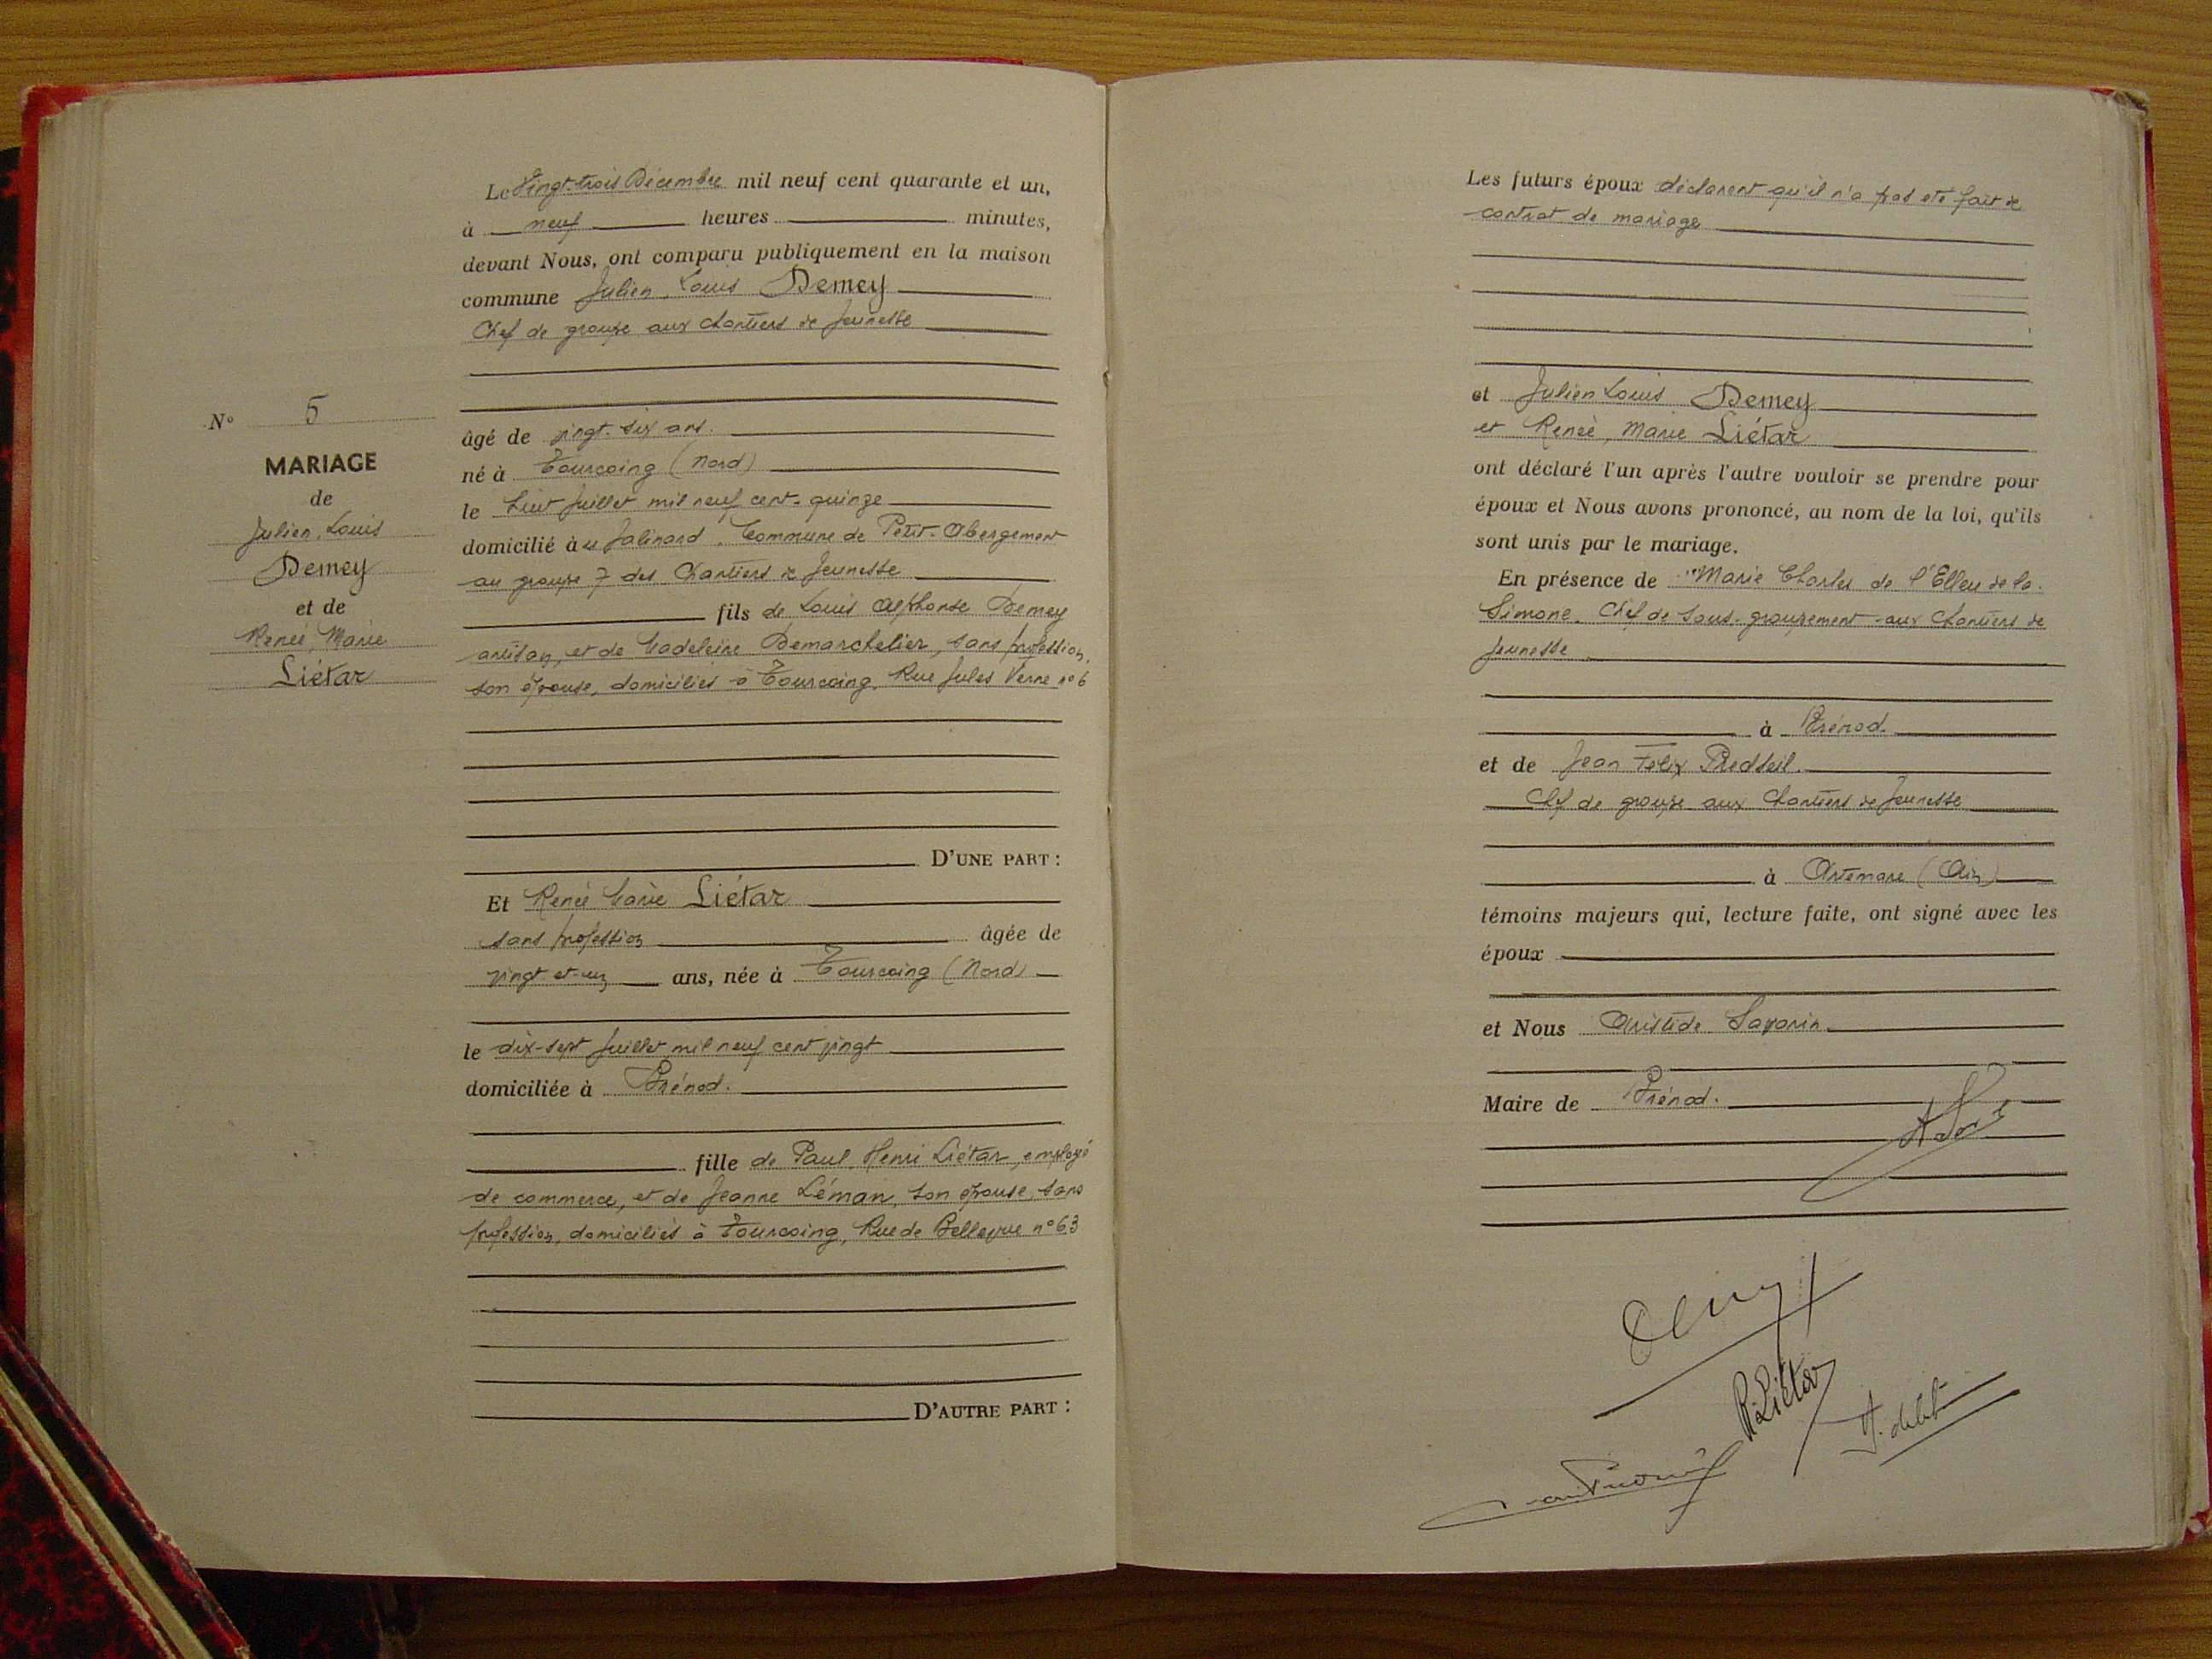 Le Vingt-trois Décembre mil neuf cent quarante et un,
à neuf heures minutes,
devant Nous, ont comparu publiquement en la maison
commune Julien, Louis Demey
Chef de groupe aux Chantiers de Jeunesse
N° 5
MARIAGE
de
Julien, Louis
Demey
et de
Renée, Marie
Liétar
âgé de vingt-six ans.
né à Tourcoing (Nord)
le huit Juillet mil neuf cent-quinze
domicilié à Jalinard, Commune de Petit-Abergement
au groupe 7 des Chantiers de Jeunesse
fils de Louis Alphonse Demey
artisan, et de Madeleine Demarchelier, sans profession,
son épouse, domiciliés à Tourcoing, Rue Jules Verne n° 6
D'UNE PART :
Et Renée Marie Liétar
sans profession âgée de
vingt-et-un ans, née à Tourcoing (Nord)
le dix-sept Juillet mil neuf cent vingt
domiciliée à Brénod.
fille de Paul, Henri Liétar, employé
de commerce, et de Jeanne Léman, son épouse, sans
profession, domiciliés à Tourcoing, Rue de Bellevue n° 63
D'AUTRE PART :
Les futurs époux déclarent qu'il n'a pas été fait de
contrat de mariage
et Julien Louis Demey
et Renée, Marie Liétar
ont déclaré l'un après l'autre vouloir se prendre pour
époux et Nous avons prononcé, au nom de la loi, qu'ils
sont unis par le mariage.
En présence de Marie Charles de l'Elleu de la
Simone, Chef de sous-groupement aux Chantiers de
Jeunesse
à Brénod.
et de Jean Felix
Chef de groupe aux Chantiers de Jeunesse
à Artemare (Ain)
témoins majeurs qui, lecture faite, ont signé avec les
époux
et Nous Aristide Savarin
Maire de Brénod.
Demey
R. Liétar